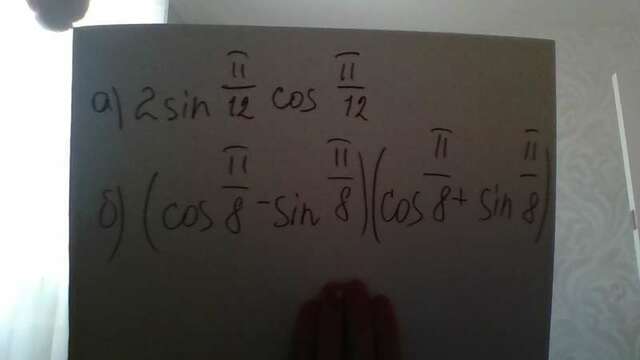 а) 2 sin π/12 cos π/12
б) (cos π/8 - sin π/8)(cos π/8 + sin π/8)